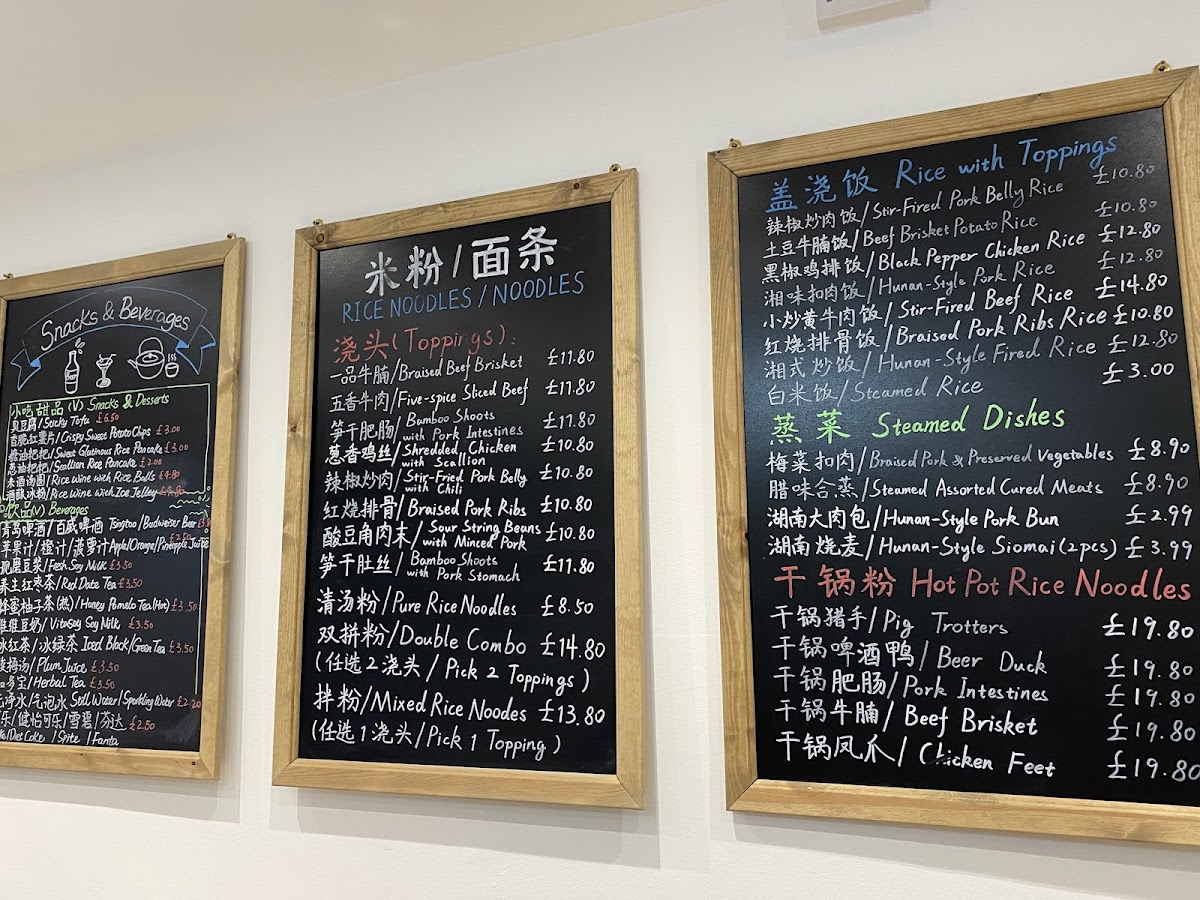 Snacks & Beverages
小吃甜品(V) Snacks & Desserts
臭豆腐/Sticky Tofu £6.50
香脆红薯片/Crispy Sweet Potato Chips £3.00
糖油粑粑/Sweet Glutinous Rice Pancake £3.00
葱油粑粑/Scallion Rice Pancake £2.00
米酒汤圆/Rice Wine with Rice Balls £4.80
酒酿冰粉/Rice Wine with Ice Jelley £4.80
饮品(V) Beverages
青岛啤酒/百威啤酒 Tsingtao/Budweiser Beer
苹果汁/橙汁/菠萝汁 Apple/Orange/Pineapple Juice £2.50
现磨豆浆/Fesh Soy Milk £3.50
养生红枣茶/Red Date Tea £3.50
蜂蜜柚子茶(热)/Honey Pomelo Tea(Hot) £3.50
维维豆奶/Vitasoy Soy Milk £3.50
冰红茶/冰绿茶 Iced Black/Green Tea £3.50
酸梅汤/Plum Juice £3.50
多宝/Herbal Tea £3.50
净水/气泡水 Still Water/Sparkling Water £2.20
乐/健怡可乐/雪碧/芬达 £2.50
/Diet Coke /Sprite /Fanta
米粉/面条
RICE NOODLES/NOODLES
浇头(Toppings):
一品牛腩/Braised Beef Brisket £11.80
五香牛肉/Five-spice Sliced Beef £11.80
笋干肥肠/Bamboo Shoots with Pork Intestines £11.80
葱香鸡丝/Shredded Chicken with Scallion £10.80
辣椒炒肉/Stir-Fried Pork Belly with Chili £10.80
红烧排骨/Braised Pork Ribs £10.80
酸豆角肉末/Sour String Beans with Minced Pork £10.80
笋干肚丝/Bamboo Shoots with Pork Stomach £11.80
清汤粉/Pure Rice Noodles £8.50
双拼粉/Double Combo £14.80
(任选2浇头/Pick 2 Toppings)
拌粉/Mixed Rice Noodes £13.80
(任选1浇头/Pick 1 Topping)
盖浇饭 Rice with Toppings
辣椒炒肉饭/Stir-Fired Pork Belly Rice £10.80
土豆牛腩饭/Beef Brisket Potato Rice £10.80
黑椒鸡排饭/Black Pepper Chicken Rice £12.80
湘味扣肉饭/Hunan-Style Pork Rice £12.80
小炒黄牛肉饭/Stir-Fired Beef Rice £14.80
红烧排骨饭/Braised Pork Ribs Rice £10.80
湘式炒饭/Hunan-Style Fired Rice £12.80
白米饭/Steamed Rice £3.00
蒸菜 Steamed Dishes
梅菜扣肉/Braised Pork & Preserved Vegetables £8.90
腊味合蒸/Steamed Assorted Cured Meats £8.90
湖南大肉包/Hunan-Style Pork Bun £2.99
湖南烧麦/Hunan-Style Siomai(2pcs) £3.99
干锅粉 Hot Pot Rice Noodles
干锅猪手/Pig Trotters £19.80
干锅啤酒鸭/Beer Duck £19.80
干锅肥肠/Pork Intestines £19.80
干锅牛腩/Beef Brisket £19.80
干锅凤爪/Chicken Feet £19.80